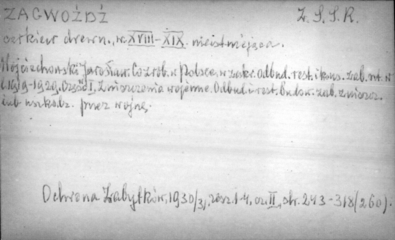 ZAGWOŹDŹ Z.S.S.R.
cerkiew drewn., w. XVIII–XIX. nieistniejąca.
Wojciechowski Jarosław. Co zrob. w Polsce w zakr. odbud. rest. i kons. zab. szt. w
l. 1919-1929. Część I, Zniszczenia wojenne. Odbud. i rest. budow. zab. zniszcz.
lub uszkodz. przez wojnę.
Ochrona Zabytków, 1930/31, zesz. 1-4, cz. II, str. 243-318 (260).